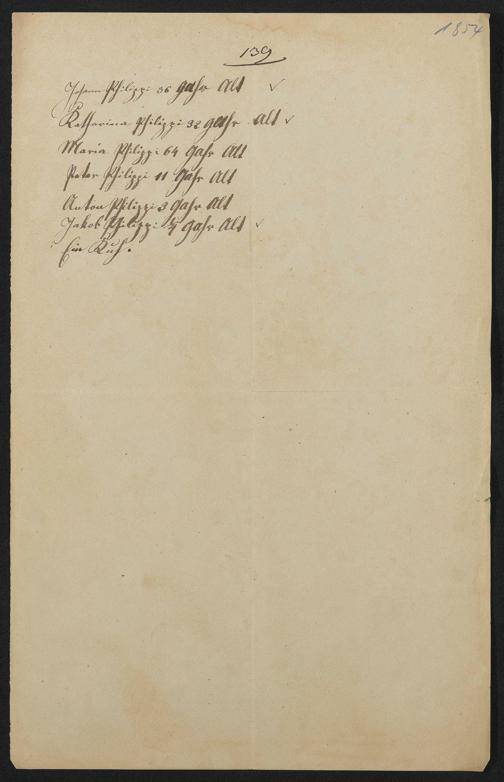 1854
139
Johann Philippi 36 Jahr Alt ✓
Katharina Philippi 32 Jahr Alt ✓
Maria Philippi 64 Jahr Alt
Peter Philippi 11 Jahr Alt
Anton Philippi 3 Jahr Alt
Jakob Philippi Jahr Alt ✓
Ein Kuh.